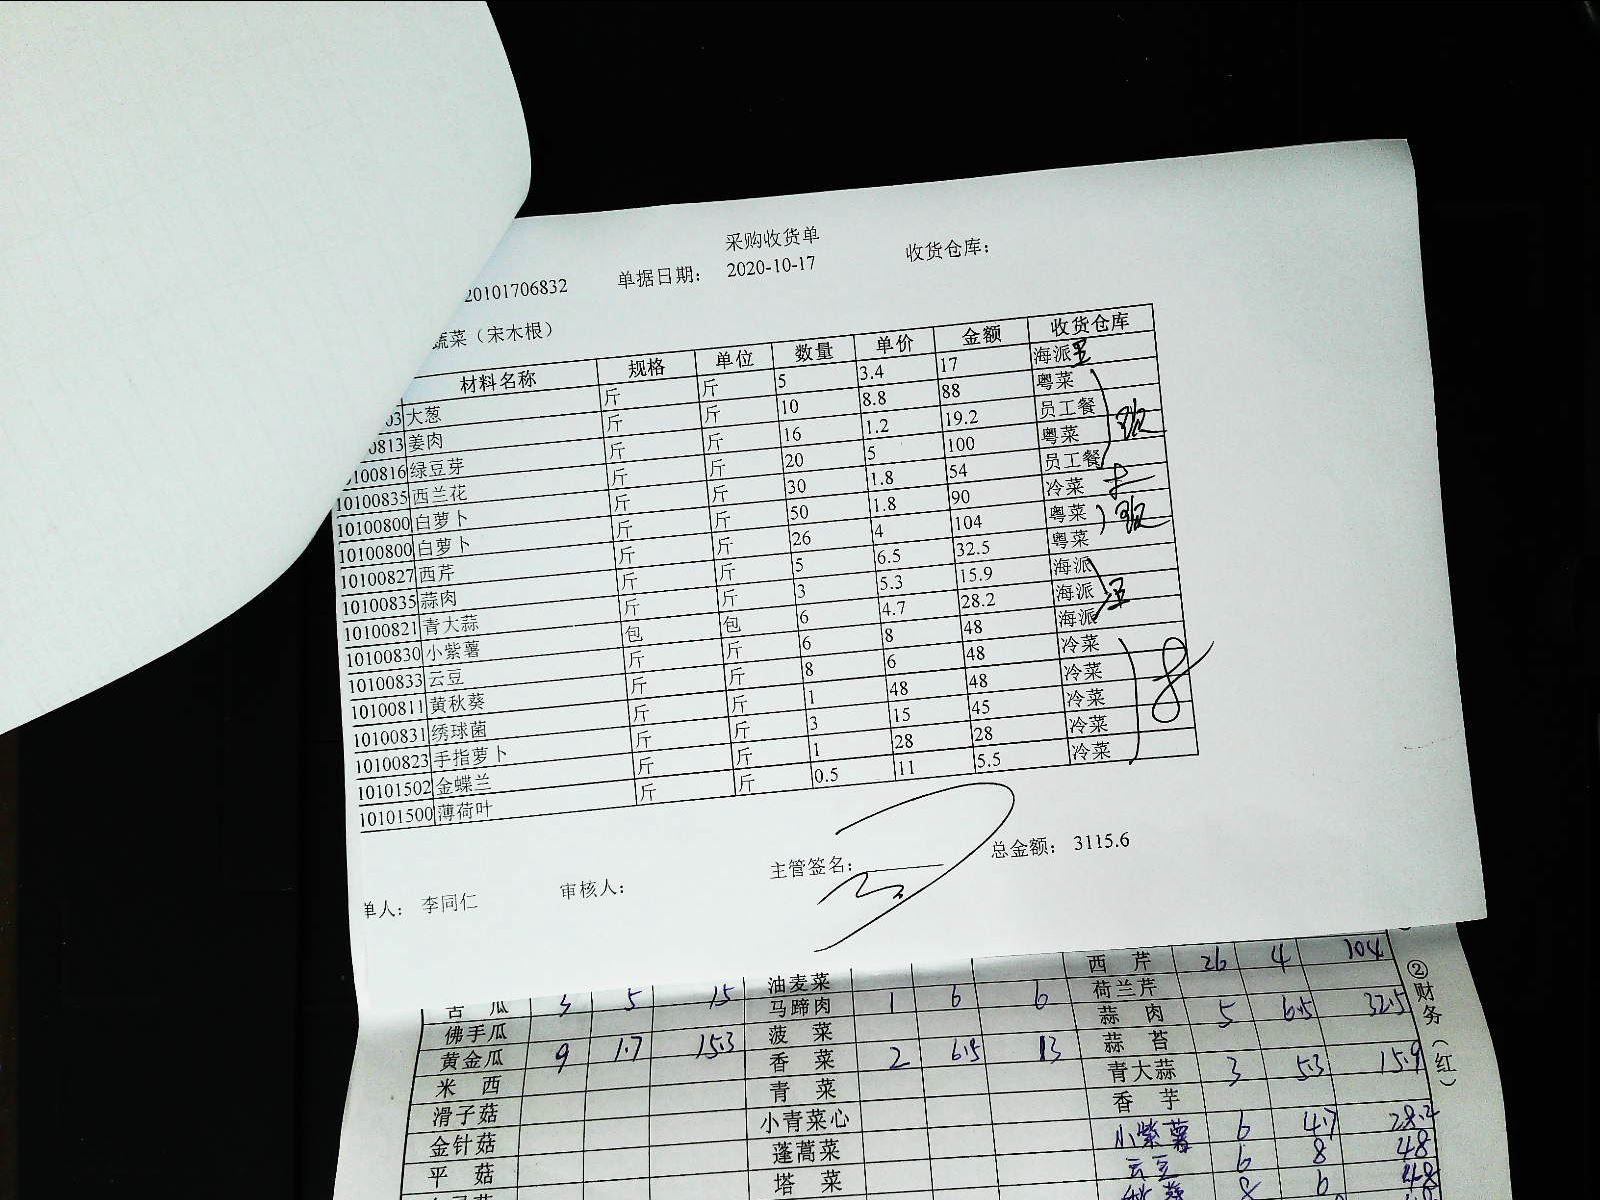 采购收货单
20101706832 单据日期： 2020-10-17 收货仓库：
蔬菜（宋木根）
材料名称 规格 单位 数量 单价 金额 收货仓库
03 大葱 斤 斤 5 3.4 17 海派
0813 姜肉 斤 斤 10 8.8 88 粤菜
0100816 绿豆芽 斤 斤 16 1.2 19.2 员工餐
10100835 西兰花 斤 斤 20 5 100 粤菜
10100800 白萝卜 斤 斤 30 1.8 54 员工餐
10100800 白萝卜 斤 斤 50 1.8 90 冷菜
10100827 西芹 斤 斤 26 4 104 粤菜
10100835 蒜肉 斤 斤 5 6.5 32.5 粤菜
10100821 青大蒜 斤 斤 3 5.3 15.9 海派
10100830 小紫薯 包 包 6 4.7 28.2 海派
10100833 云豆 斤 斤 6 8 48 海派
10100811 黄秋葵 斤 斤 8 6 48 冷菜
10100831 绣球菌 斤 斤 1 48 48 冷菜
10100823 手指萝卜 斤 斤 3 15 45 冷菜
10101502 金蝶兰 斤 斤 1 28 28 冷菜
10101500 薄荷叶 斤 斤 0.5 11 5.5 冷菜
单人： 李同仁 审核人： 主管签名： 总金额： 3115.6
油麦菜 西芹 26 4 104
苦瓜 3 5 15 马蹄肉 1 6 6 荷兰芹
佛手瓜 菠菜 蒜肉 5 6.5 32.5
黄金瓜 9 1.7 15.3 香菜 2 6.5 13 蒜苔
米西 青菜 青大蒜 3 5.3 15.9
滑子菇 小青菜心 香芋
金针菇 蓬蒿菜 小紫薯 6 4.7 28.2
平菇 塔菜 云豆 6 8 48
8 6 48
②财务（红）